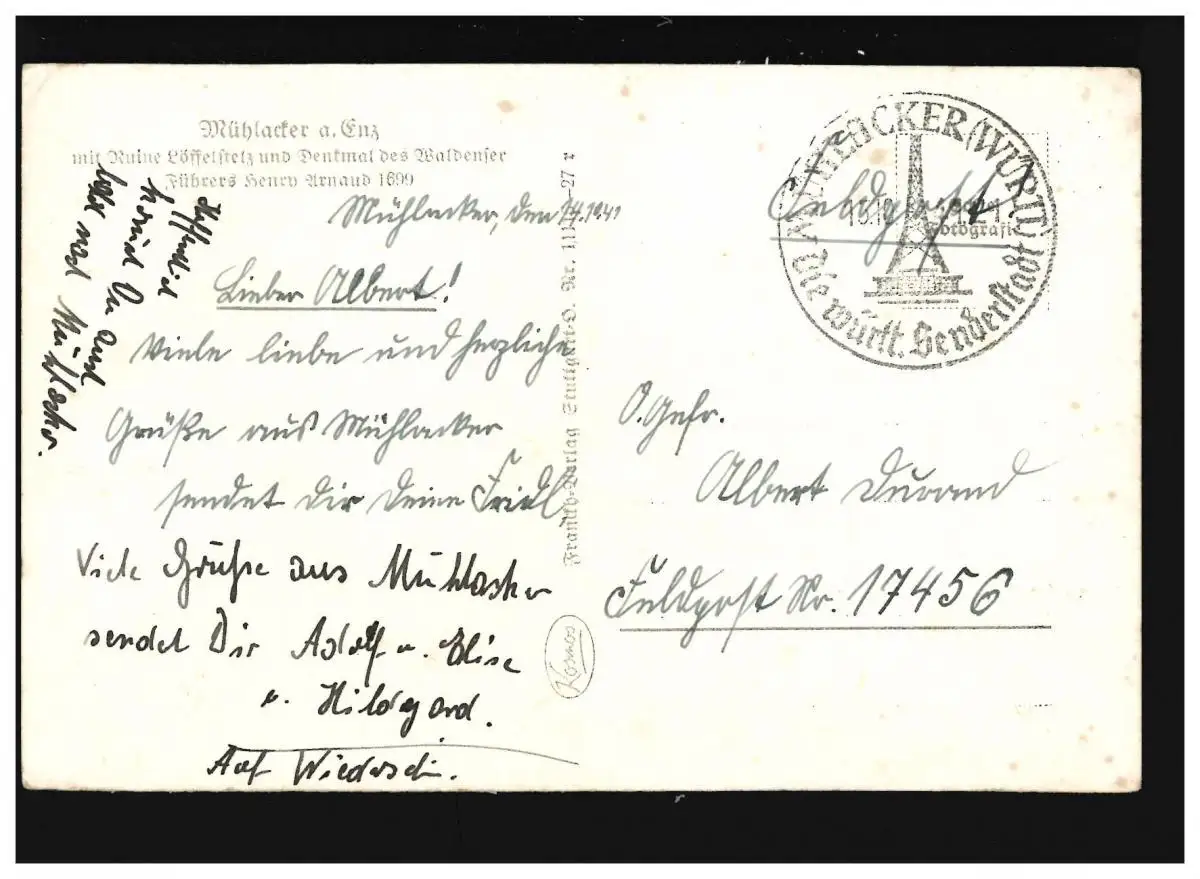 Mühlacker a. Enz
mit Ruine Löffelstelz und Denkmal des Waldenser
Führers Henry Arnaud 1699
Mühlacker, den
Lieber Albert!
Viele liebe und herzliche
Grüße aus Mühlacker
sendet Dir Deine Friedl
Viele Grüße aus Mühlacker
sendet Dir Adolf u. Elise
u. Hildegard.
Auf Wiederseh'n.
Hoffentlich
kommst Du auch
bald nach Mühlacker.
Franckh-Verlag Stuttgart-O. Nr. 111-27
Kosmos
MÜHLACKER (WÜRTT)
Die württ. Senderstadt
Feldpost
Fotografie
O. Gefr.
Albert Durand
Feldpost Nr. 17456